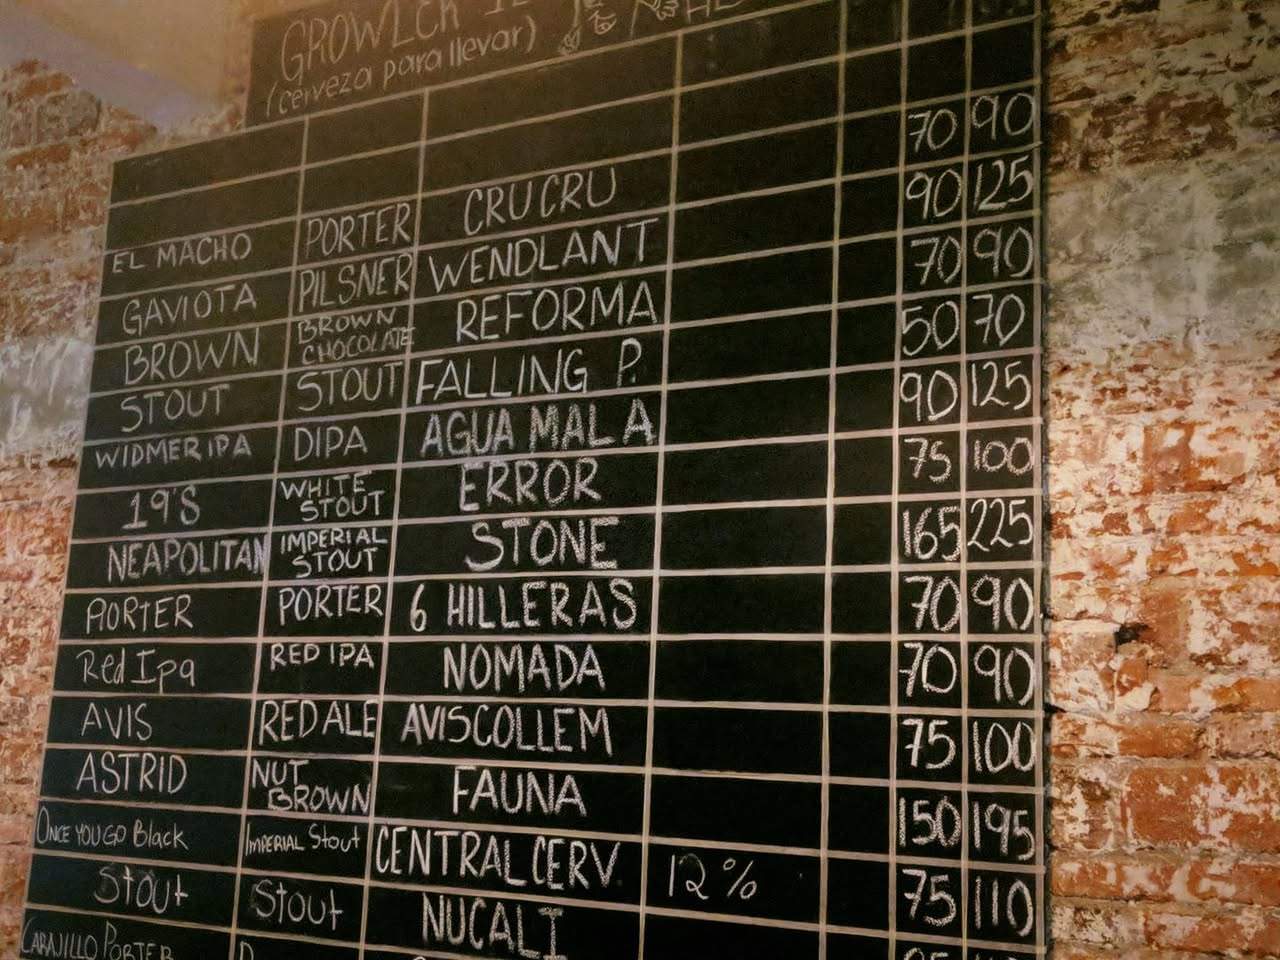 GROWLER
(cerveza para llevar)
EL MACHO PORTER CRUCRU 70 90
GAVIOTA PILSNER WENDLANT 90 125
BROWN BROWN CHOCOLATE REFORMA 70 90
STOUT STOUT FALLING P. 50 70
WIDMER IPA DIPA AGUA MALA 90 125
19'S WHITE STOUT ERROR 75 100
NEAPOLITAN IMPERIAL STOUT STONE 165 225
PORTER PORTER 6 HILLERAS 70 90
Red Ipa RED IPA NOMADA 70 90
AVIS RED ALE AVISCOLLEM 75 100
ASTRID NUT BROWN FAUNA 150 195
ONCE YOU GO Black IMPERIAL Stout CENTRAL CERV. 12% 75 110
Stout Stout NUCALI
CARAJILLO PORTER